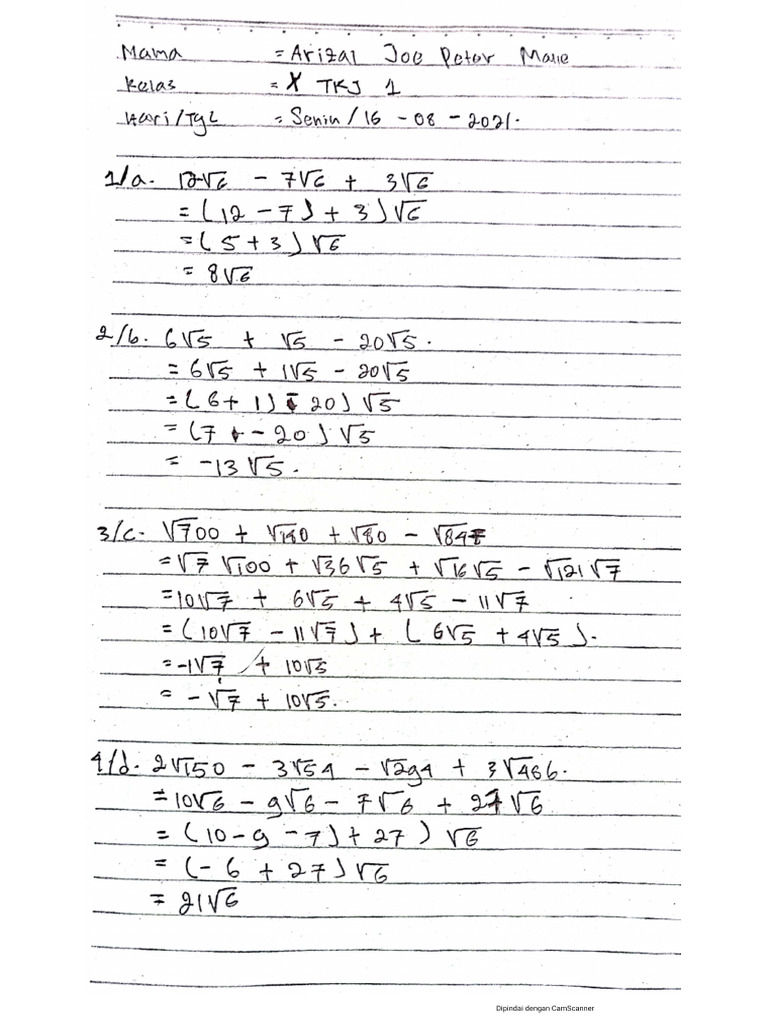 Nama = Arizal Joe Peter Mane
Kelas = X TKJ 1
Hari/Tgl = Senin / 16 - 08 - 2021.
1/a. 12√6 - 7√6 + 3√6
= (12 - 7) + 3)√6
= (5 + 3)√6
= 8√6
2/b. 6√5 + √5 - 20√5.
= 6√5 + 1√5 - 20√5
= (6 + 1) - 20)√5
= (7 - 20)√5
= -13√5.
3/c. √700 + √180 + √80 - √847
= √7 √100 + √36√5 + √16√5 - √121√7
= 10√7 + 6√5 + 4√5 - 11√7
= (10√7 - 11√7) + (6√5 + 4√5).
= -1√7 + 10√5
= -√7 + 10√5.
4/d. 2√150 - 3√54 - √294 + 3√486.
= 10√6 - 9√6 - 7√6 + 27√6
= (10 - 9 - 7) + 27)√6
= (-6 + 27)√6
= 21√6
Dipindai dengan CamScanner